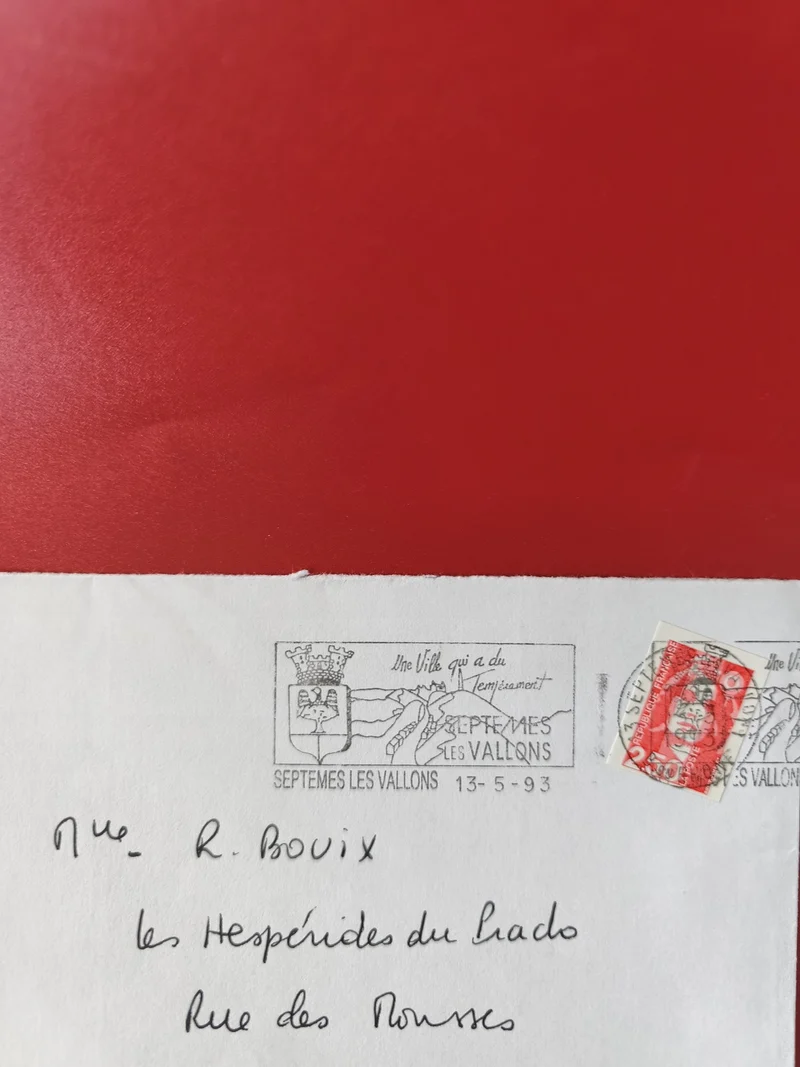 Une Ville qui a du
Tempérament
SEPTEMES
LES VALLONS
SEPTEMES LES VALLONS 13-5-93
RÉPUBLIQUE FRANÇAISE
Une Vi
S VALLON
Mlle R. BOUIX
Les Hespérides du Prado
Rue des Mousses